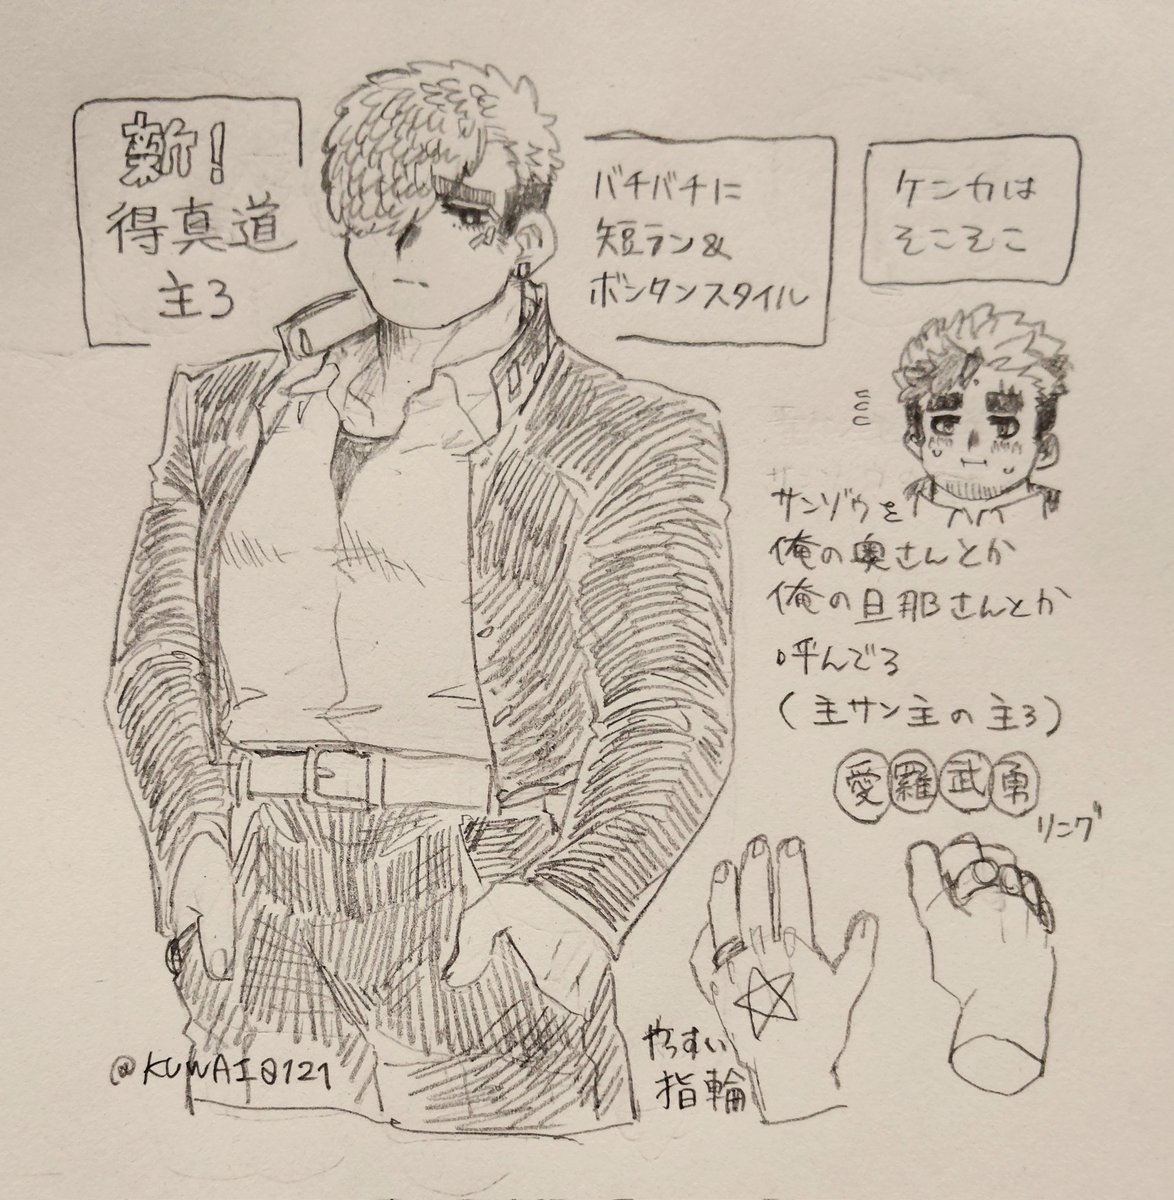 新!
得真道
主3
バチバチに
短ラン&
ボンタンスタイル
ケンカは
そこそこ
サンゾウを
俺の奥さんとか
俺の旦那さんとか
呼んでる
(主サン主の主3)
愛羅武勇
リング
やっすい
指輪
@KUWAI0121